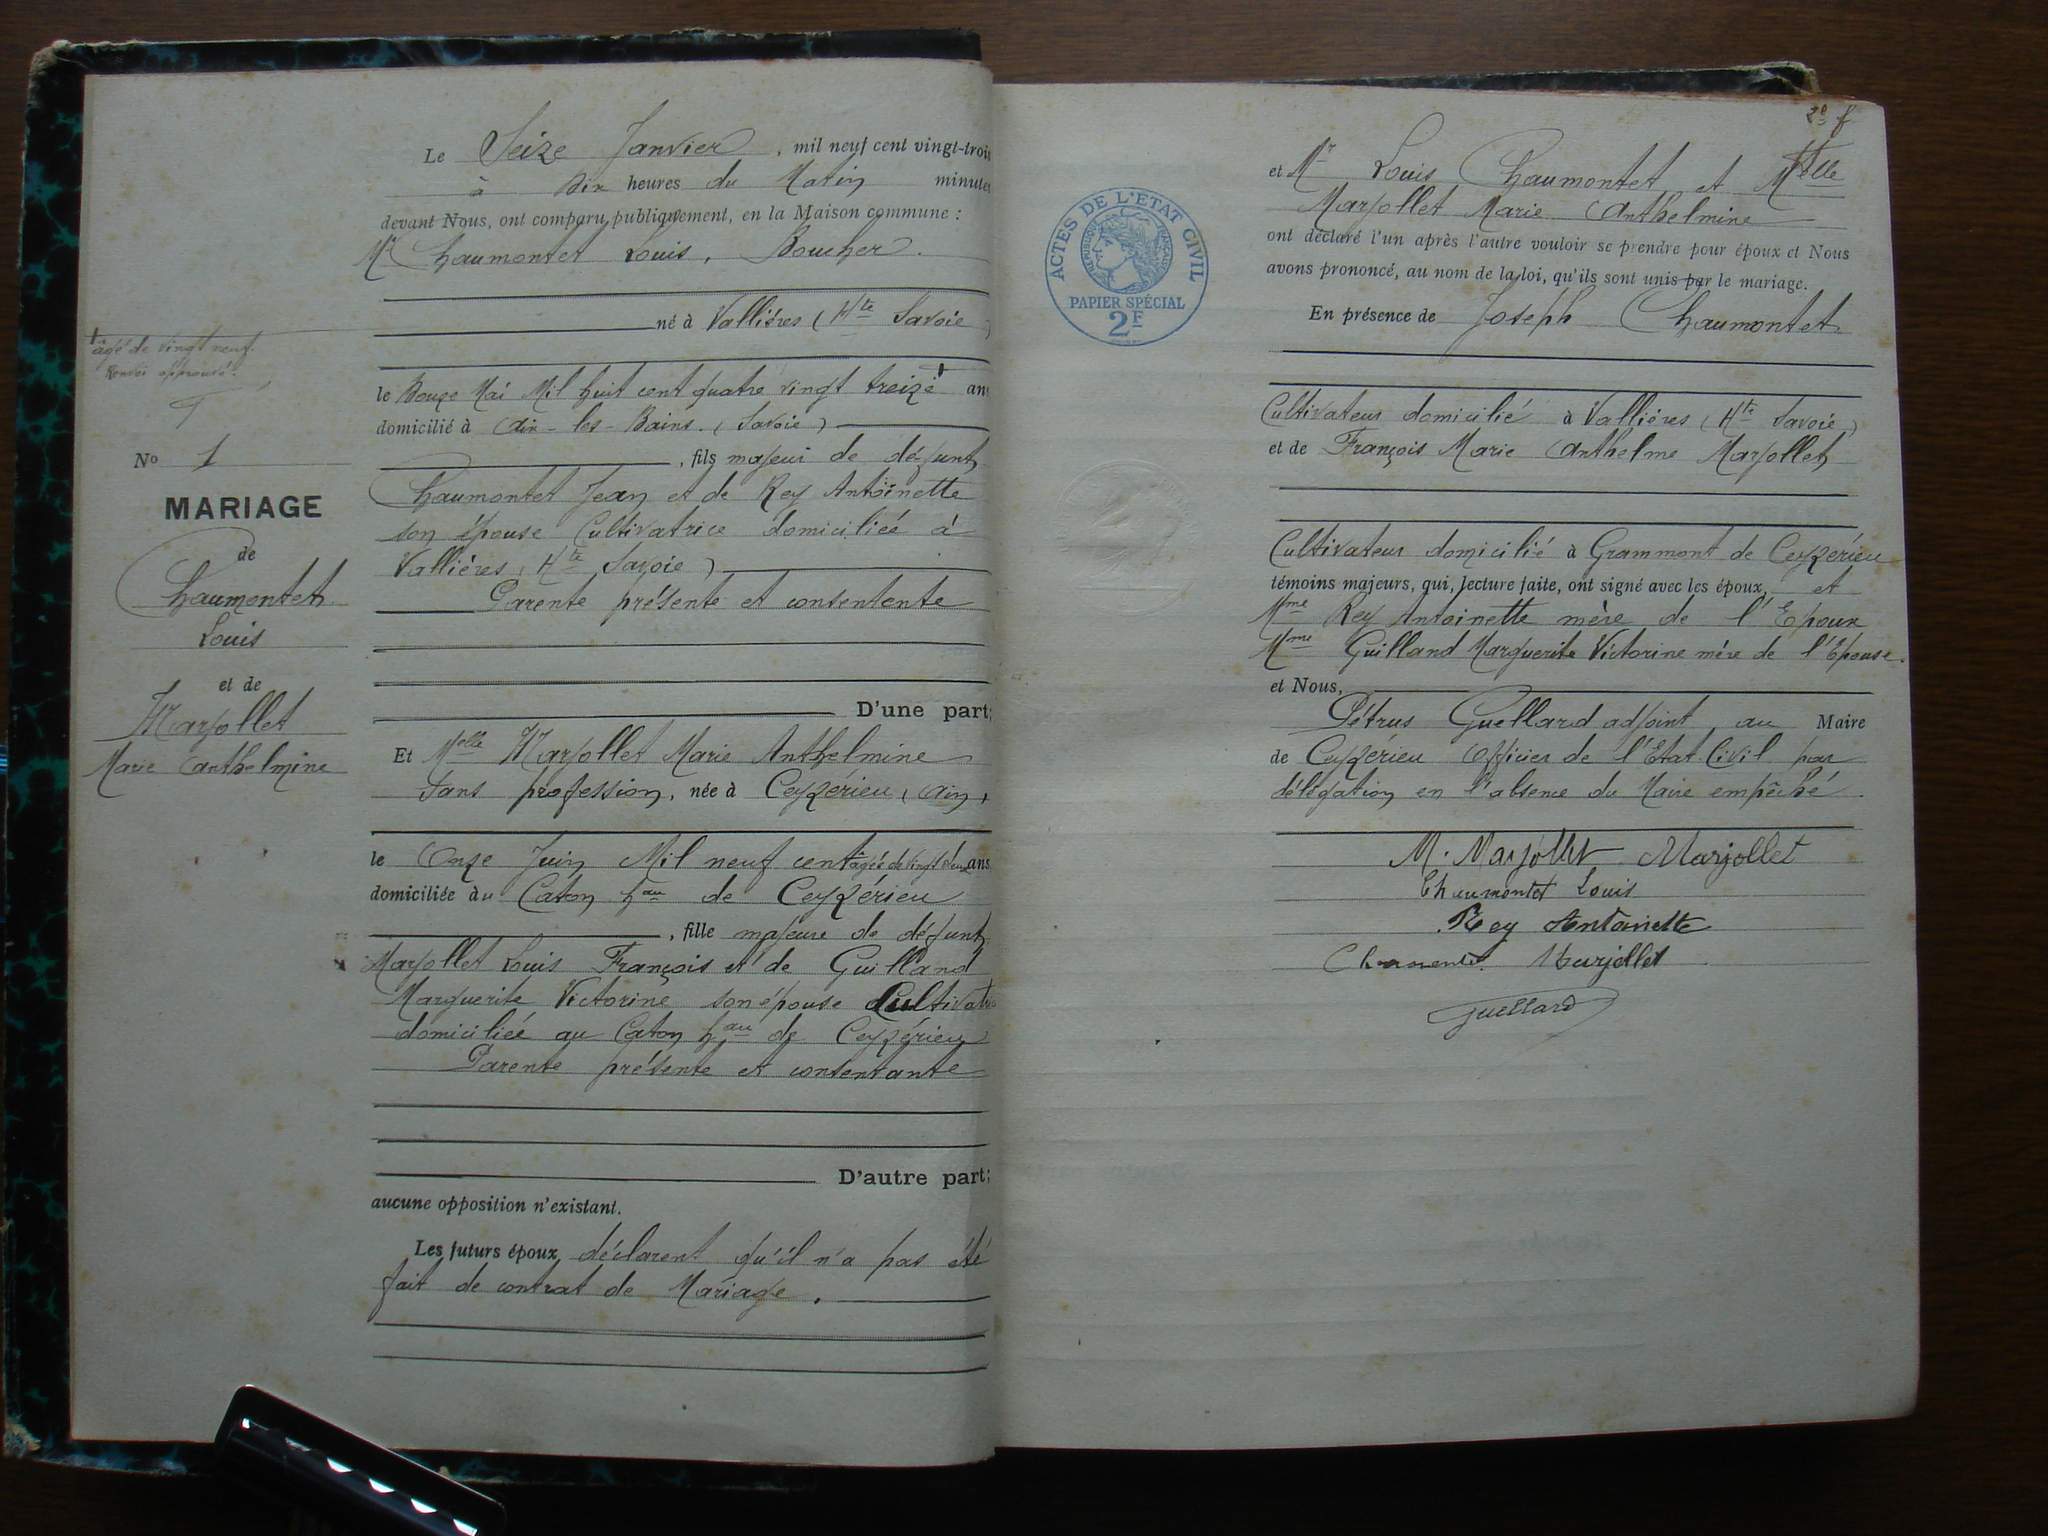 Le Seize Janvier, mil neuf cent vingt-trois
à Dix heures du Matin minutes
devant Nous, ont comparu publiquement, en la Maison commune :
Mr Chaumontet Louis, Boucher.
né à Vallières (Hte Savoie)
âgé de vingt neuf.
Renvoi approuvé.
le Douze Mai Mil huit cent quatre vingt treize ans
domicilié à Aix-les-Bains. (Savoie)
, fils majeur de défunt
Chaumontet Jean et de Rey Antoinette
son épouse Cultivatrice domiciliée à
Vallières (Hte Savoie)
Parente présente et consentente
D'une part;
No 1
MARIAGE
de
Chaumontet
Louis
et de
Marjollet
Marie Anthelmine
Et Melle Marjollet Marie Anthelmine
sans profession, née à Ceyzérieu (Ain)
le Onze Juin Mil neuf cent âgée de vingt deux ans
domiciliée au Caton hau de Ceyzérieu
, fille majeure de défunt
Marjollet Louis François et de Guilland
Marguerite Victorine son épouse Cultivatrice
domiciliée au Caton hau de Ceyzérieu
Parente présente et consentante
D'autre part;
aucune opposition n'existant.
Les futurs époux déclarent qu'il n'a pas été
fait de contrat de Mariage.
2e f
ACTES DE L'ETAT CIVIL
REPUBLIQUE FRANCAISE
PAPIER SPÉCIAL
2F
et Mr Louis Chaumontet et Melle
Marjollet Marie Anthelmine
ont déclaré l'un après l'autre vouloir se prendre pour époux et Nous
avons prononcé, au nom de la loi, qu'ils sont unis par le mariage.
En présence de Joseph Chaumontet
Cultivateur domicilié à Vallières (Hte Savoie)
et de François Marie Anthelme Marjollet
Cultivateur domicilié à Grammont de Ceyzérieu
témoins majeurs, qui, lecture faite, ont signé avec les époux, et
Mme Rey Antoinette mère de l'Epoux
Mme Guilland Marguerite Victorine mère de l'Epouse.
et Nous,
Pétrus Guellard adjoint au Maire
de Ceyzérieu Officier de l'Etat Civil par
délégation en l'absence du Maire empêché.
M. Marjollet Marjollet
Chaumontet Louis
Rey Antoinette
Marjollet
Guellard